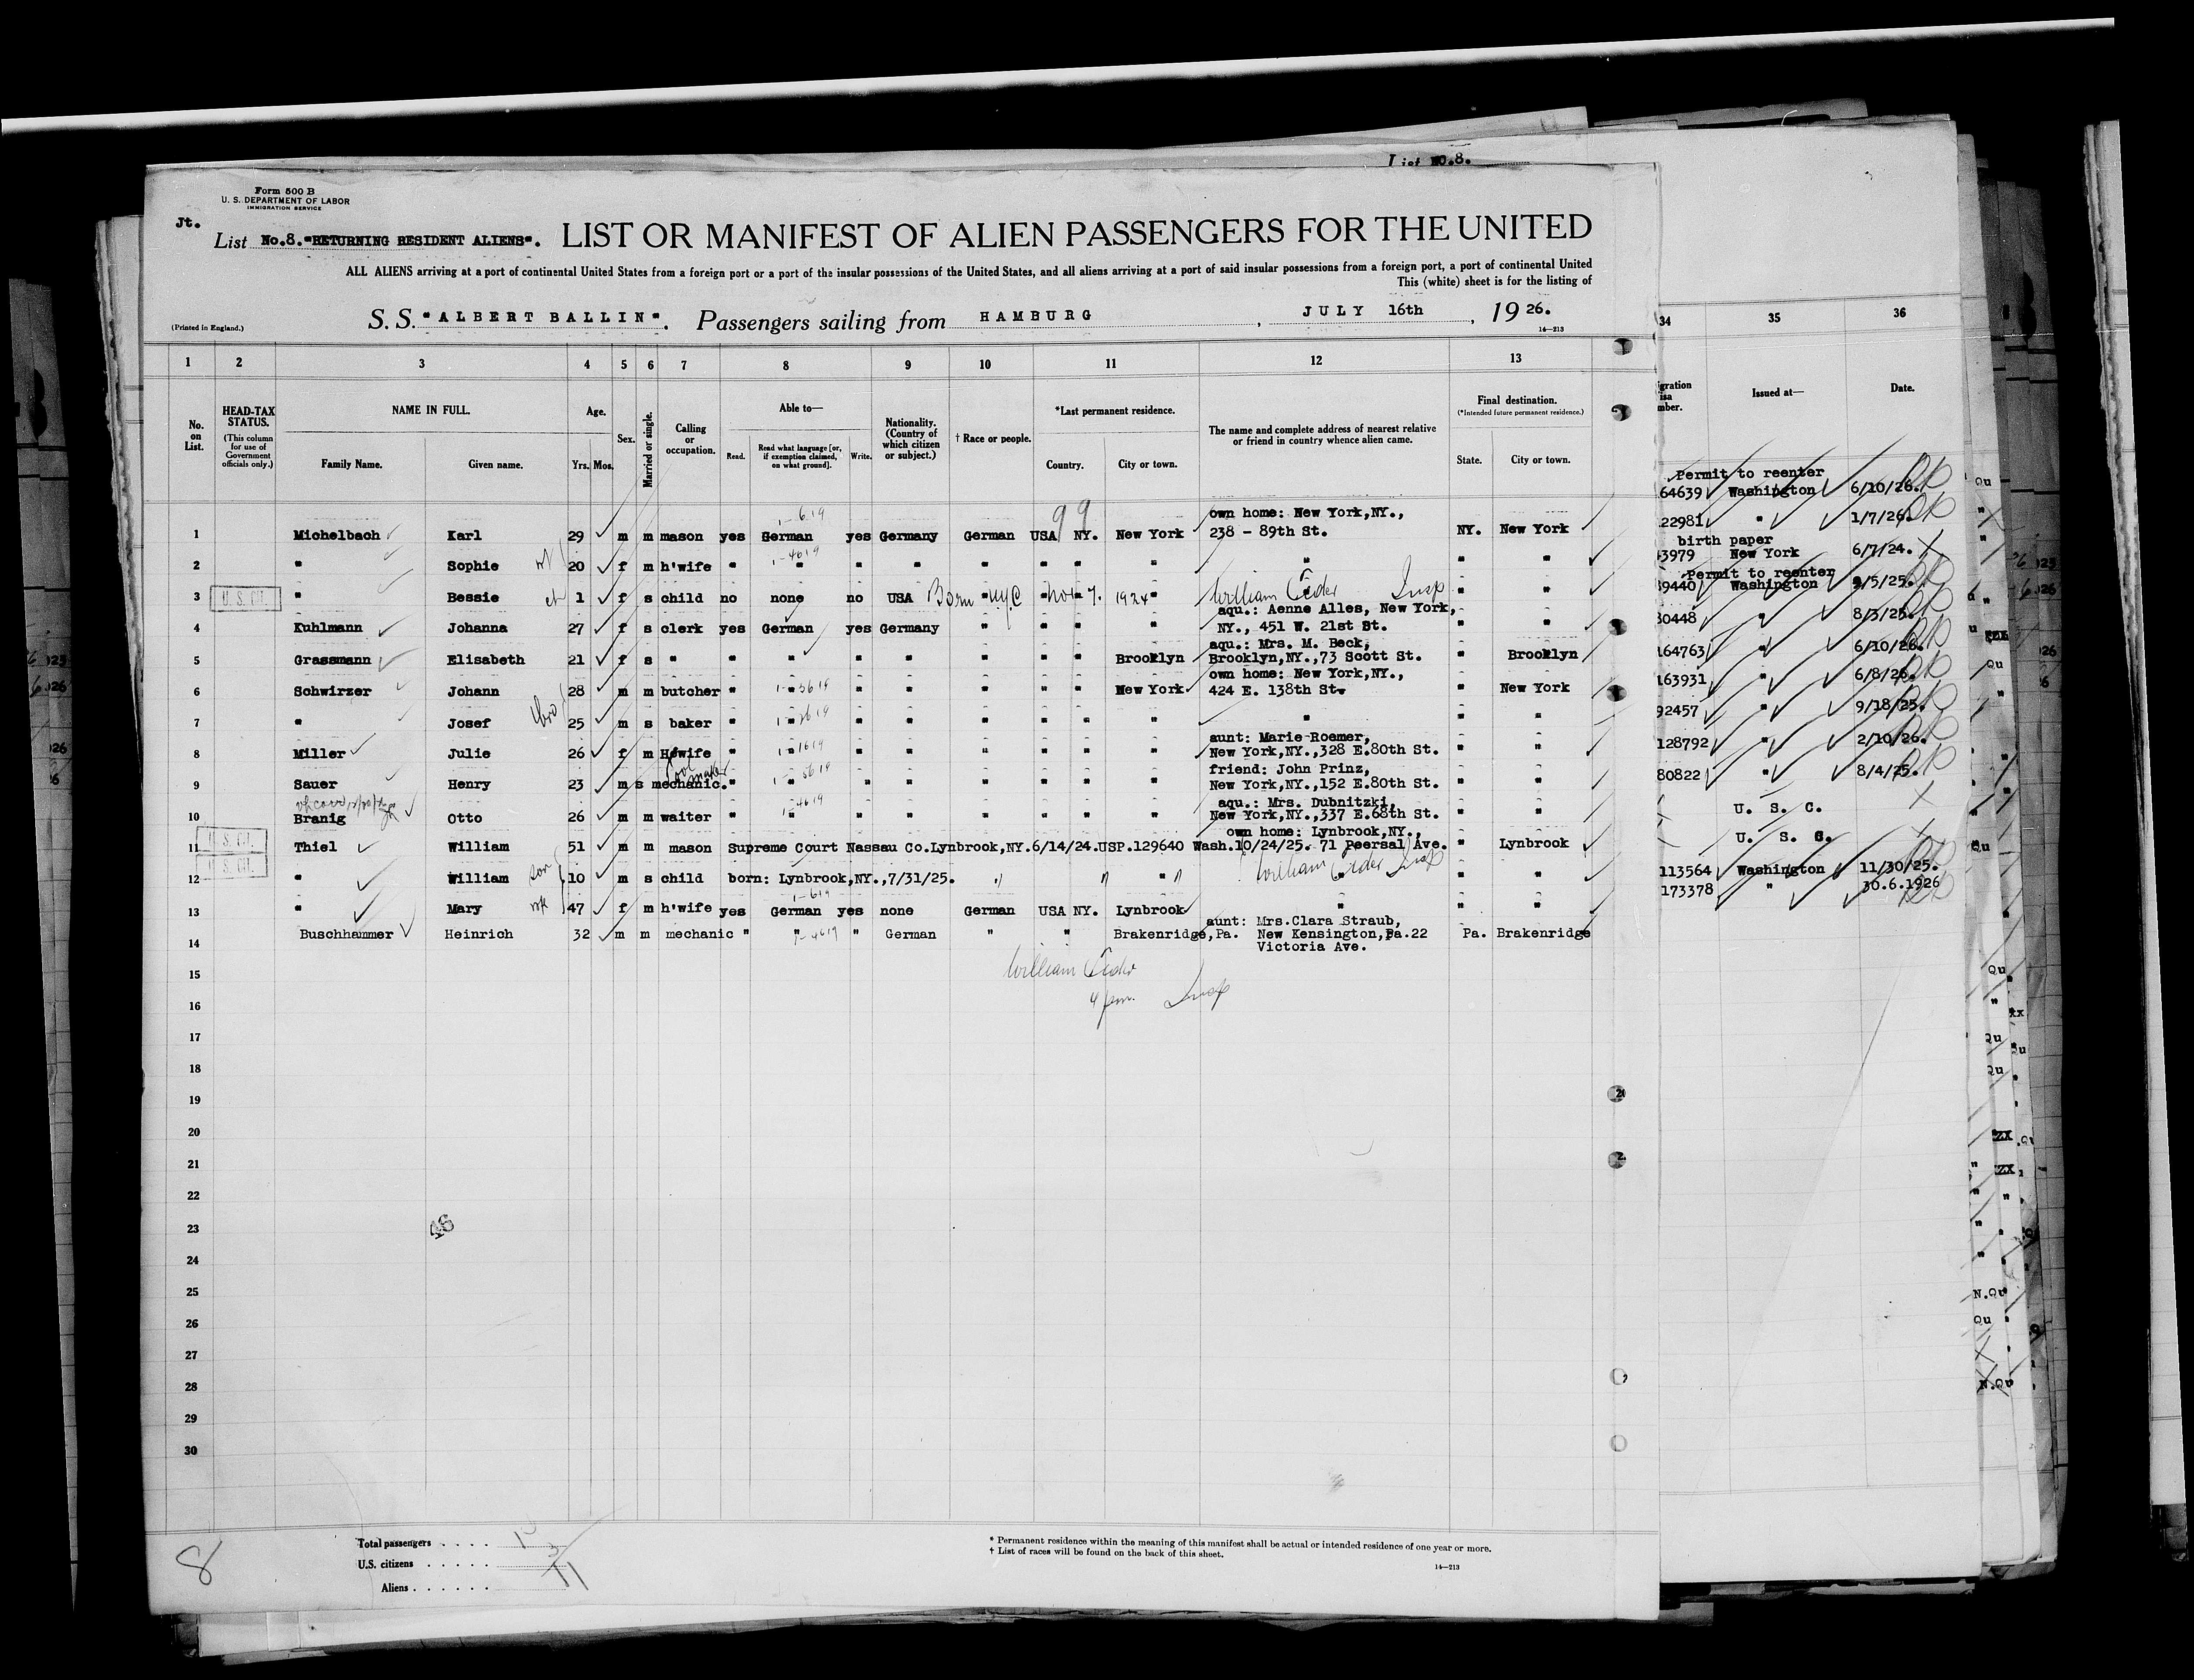 List No.8.
Form 500 B
U. S. DEPARTMENT OF LABOR
IMMIGRATION SERVICE
Jt.
List No.8."RETURNING RESIDENT ALIENS". LIST OR MANIFEST OF ALIEN PASSENGERS FOR THE UNITED
ALL ALIENS arriving at a port of continental United States from a foreign port or a port of the insular possessions of the United States, and all aliens arriving at a port of said insular possessions from a foreign port, a port of continental United
This (white) sheet is for the listing of
(Printed in England.) S. S. "ALBERT BALLIN". Passengers sailing from HAMBURG, JULY 16th, 19 26.
14—213
1 2 3 4 5 6 7 8 9 10 11 12 13 34 35 36
No. on List.
HEAD-TAX STATUS.
(This column for use of Government officials only.)
NAME IN FULL.
Family Name. Given name.
Age.
Yrs. Mos.
Sex.
Married or single.
Calling or occupation.
Able to—
Read. Read what language [or, if exemption claimed, on what ground]. Write.
Nationality. (Country of which citizen or subject.)
† Race or people.
*Last permanent residence.
Country. City or town.
The name and complete address of nearest relative or friend in country whence alien came.
Final destination.
(*Intended future permanent residence.)
State. City or town.
Issued at— Date.
own home: New York,NY.,
1 Michelbach Karl 29 m m mason yes German yes Germany German USA NY. New York 238 - 89th St. NY. New York
2 " Sophie 20 f m h'wife " " " " " " " " " " "
3 U. S. CIT. " Bessie 1 f s child no none no USA Born NYC Nov 7. 1924 " William Eider Insp " "
aqu.: Aenne Alles, New York,
4 Kuhlmann Johanna 27 f s clerk yes German yes Germany " " " " NY., 451 W. 21st St. " "
aqu.: Mrs. M. Beck,
5 Grassmann Elisabeth 21 f s " " " " " " " " Brooklyn Brooklyn,NY.,73 Scott St. " Brooklyn
own home: New York,NY.,
6 Schwirzer Johann 28 m m butcher " " " " " " " New York 424 E. 138th St. " New York
7 " Josef bro 25 m s baker " " " " " " " " " " "
aunt: Marie Roemer,
8 Miller Julie 26 f m H'wife " " " " " " " " New York,NY.,328 E.80th St. " "
friend: John Prinz,
tool maker
9 Sauer Henry 23 m s mechanic. " " " " " " " " New York,NY.,152 E.80th St. " "
aqu.: Mrs. Dubnitzki,
10 Branig Otto 26 m m waiter " " " " " " " " New York,NY.,337 E.68th St. " "
own home: Lynbrook,NY.,
11 U. S. CIT. Thiel William 51 m m mason Supreme Court Nassau Co.Lynbrook,NY.6/14/24.USP.129640 Wash.10/24/25. 71 Peersal Ave. " Lynbrook
12 U. S. CIT. " William son 10 m s child born: Lynbrook,NY.,7/31/25. " " " " William Eider Insp " "
13 " Mary 47 f m h'wife yes German yes none German USA NY. Lynbrook " " "
aunt: Mrs.Clara Straub,
14 Buschhammer Heinrich 32 m m mechanic " " " German " " Brakenridge,Pa. New Kensington,Pa.22 Pa. Brakenridge
Victoria Ave.
15 William Eider
16 4 pm. Insp
17
18
19
20
21
22
23
24
25
26
27
28
29
30
46
Permit to reenter
64639 Washington 6/10/26.
22981 " 1/7/26.
birth paper
3979 New York 6/7/24.
Permit to reenter
39440 Washington 9/5/25.
30448 " 8/3/25.
164763 " 6/10/26.
163931 " 6/8/26.
92457 " 9/18/25.
128792 " 2/10/26.
80822 " 8/4/25.
U. S. C.
U. S. C.
113564 Washington 11/30/25.
173378 " 30.6.1926
Total passengers . . . .
U.S. citizens . . . . . 3
Aliens . . . . . . 11
8
* Permanent residence within the meaning of this manifest shall be actual or intended residence of one year or more.
† List of races will be found on the back of this sheet.
14—213